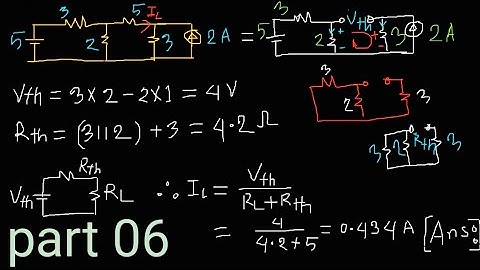 5 3 2 5 I_L 3 2A = 5 3 2 V_th 3 2A
+ - + -
V_th = 3×2 - 2×1 = 4V
3 2 3
R_th = (3||2) + 3 = 4.2 Ω
3 2 R_th 3
V_th R_th R_L ∴ I_L = V_th / (R_L + R_th)
= 4 / (4.2 + 5) = 0.434 A [Ans:]
part 06